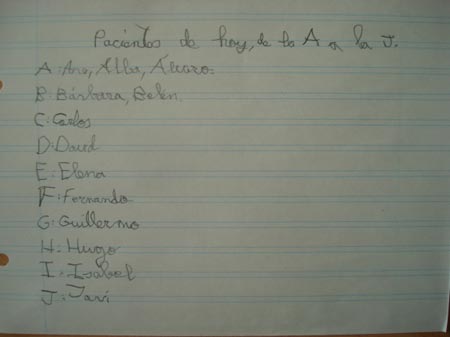 Pacientes de hoy, de la A a la J.
A: Ana, Alba, Álvaro.
B: Bárbara, Belén.
C: Carlos
D: David
E: Elena
F: Fernando
G: Guillermo
H: Hugo
I: Isabel
J: Javi